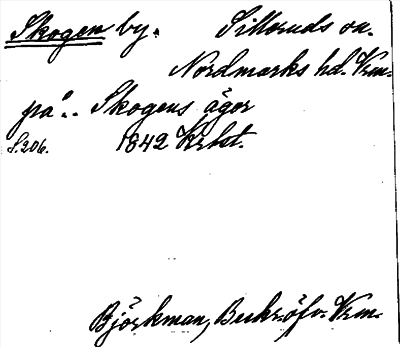 Skogen by. Silleruds sn.
Nordmarks hd. Vrm.
på .. Skogens ägor
S.206. 1842 Krbst.
Björkman, Beskr.öfv. Vrm.